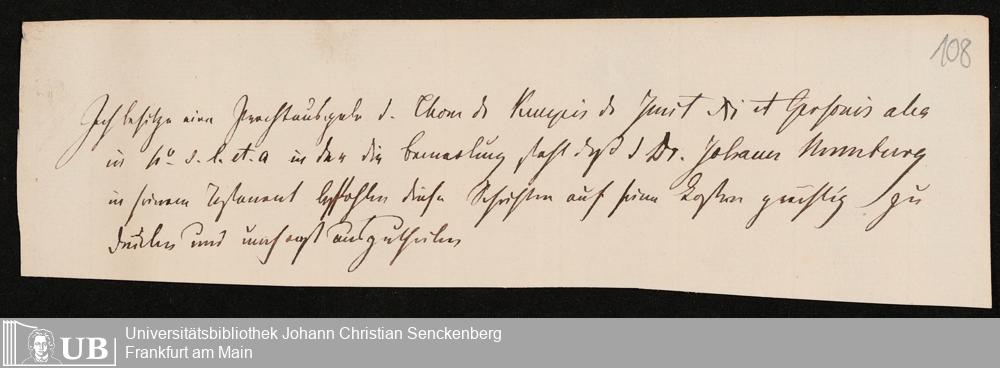 108
Ich besitze eine Prachtausgabe d. Thom de Kempis de Imit Xi et Gersonis alia
in 4º s. l. et. a in der die Bemerkung steht daß d Dr. Johann
in seinem Testament befohlen diese Schriften auf seine Kosten zu
drucken und umsonst auszutheilen
UB
Universitätsbibliothek Johann Christian Senckenberg
Frankfurt am Main